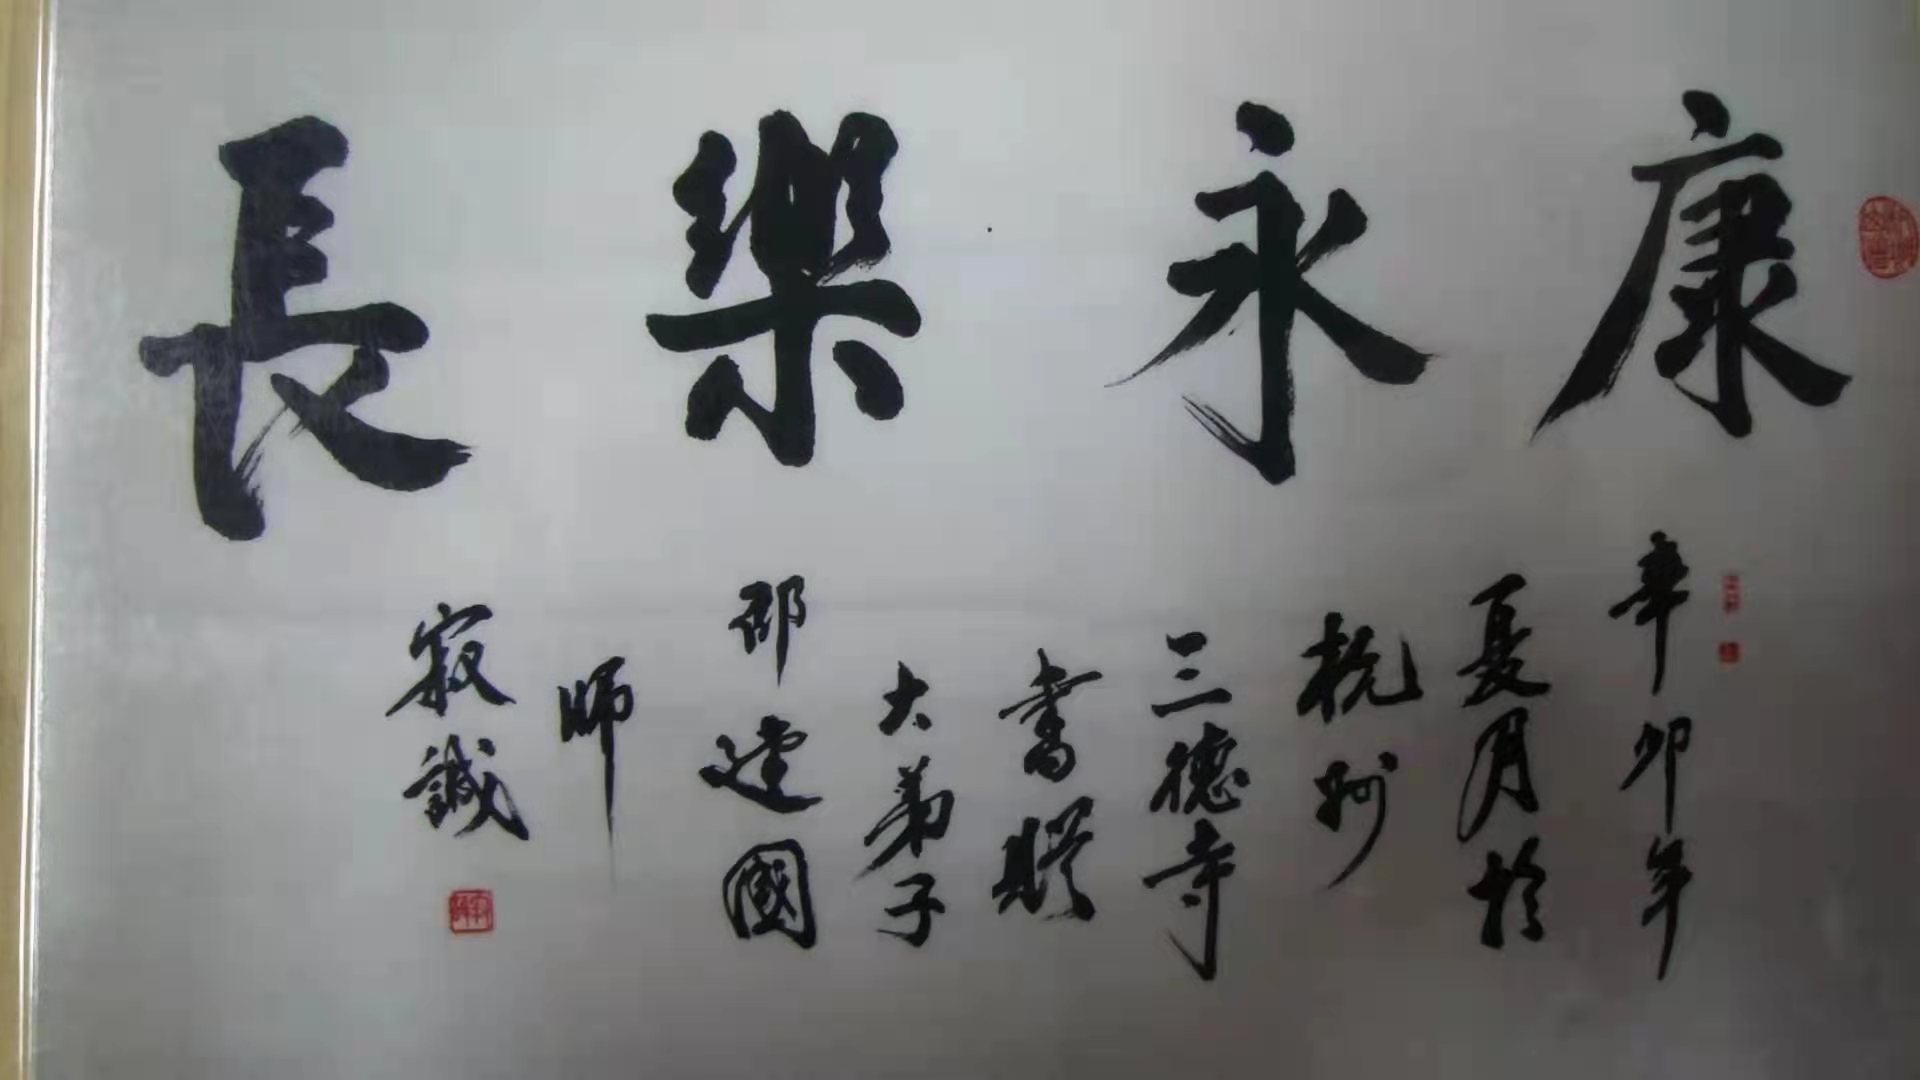 康永樂長
辛卯年
夏月於
杭州
三德寺
書贈
大弟子
邵建國
師
寂誠